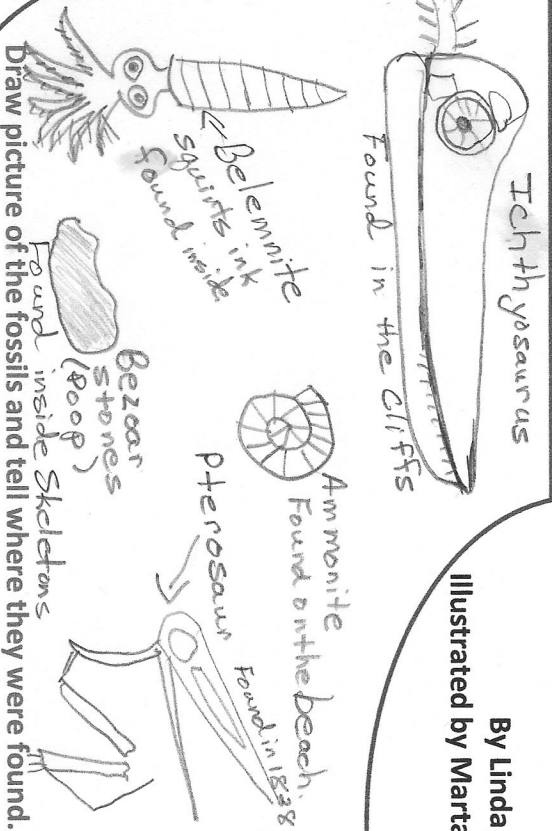 By Linda
Illustrated by Marta
Ichthyosaurus
Found in the Cliffs
Ammonite
Found on the beach.
Pterosaur
Found in 1828
Belemnite
squirts ink
found inside
Bezoar
stones
(poop)
Found inside Skeletons
Draw picture of the fossils and tell where they were found.